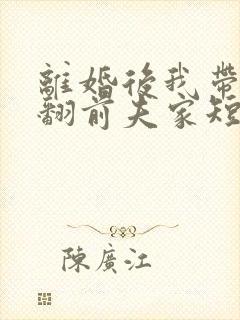 離婚後我帶
翻前夫家短
陳廣江